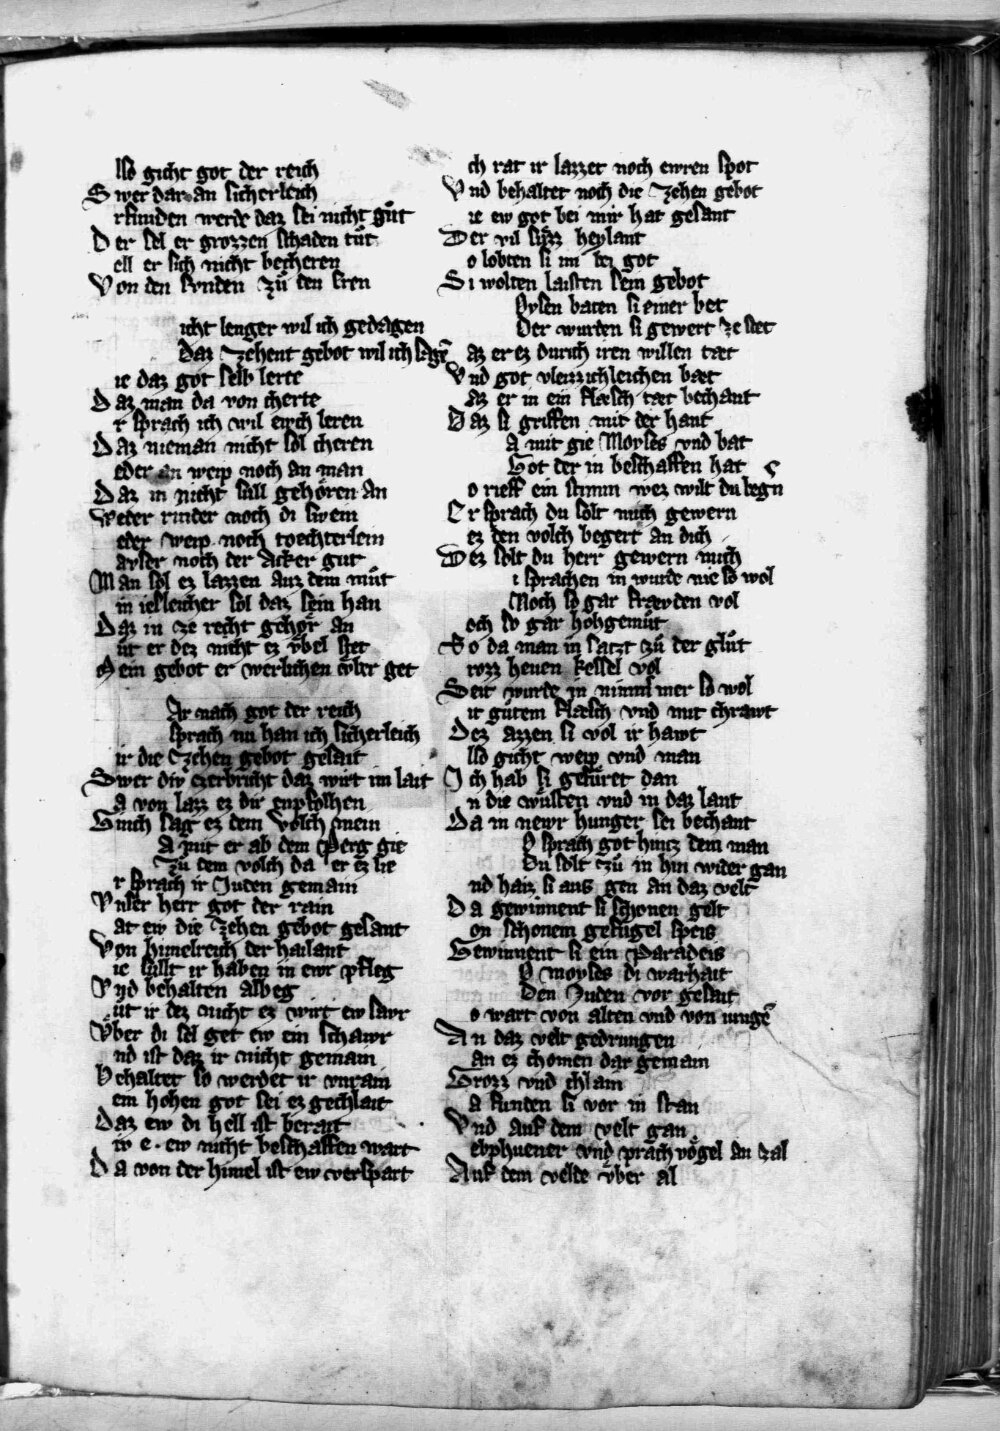 lso gicht got der reich
Swer dar an sicherleich
rfunden werde daz sei nicht gůt
Der sel er grozzen schaden tůt
ell er sich nicht becheren
Von den sunden zů den eren
icht lenger wil ich gedagen
Daz zehent gebot wil ich sagē
ie daz got selb lerte
Daz man da von cherte
r sprach ich wil ewch leren
Daz nieman nicht sol cheren
eder an weip noch an man
Daz in nicht sull gehören an
Weder rinder noch di swein
eder weip noch toechterlein
ayser noch der Acker gut
Man sol ez lazzen auz dem můt
in iesleicher sol daz sein han
Daz in ze recht gehör an
ůt er dez nicht ez vbel stet
Mein gebot er werlichen vber get
Ar nach got der reich
sprach nu han ich sicherleich
ir die zehen gebot gesait
Swer div czerbricht daz wirt im lait
a von lazz ez dir enpfolhen
Sinch sag ez dem volch mein
A mit er ab dem Perg gie
Zu dem volch da er ez lie
r sprach ir Juden gemain
Vnser herr got der rain
at ew die zehen gebot gesant
Von himelreich der hailant
ie sullt ir haben in ewr pfleg
Vnd behalten albeg
ůt ir dez nicht ez wirt ew sawr
Vber di sel get ew ein schawr
nd ist daz ir nicht gemain
Behaltet so werdet ir vnrain
em hohen got sei ez gechlait
Daz ew di hell ist berait
iv e. ew nicht beschaffen wart
Da von der himel ist ew verspart
ch rat ir lazzet noch ewren spot
Vnd behaltet noch die zehen gebot
ie ew got bei mir hat gesant
Der vil süzz heylant
o lobten si im bei got
Si wolten laisten sein gebot
Oysen baten si einer bet
Der wurden si gewert ze stet
az er ez durich iren willen tæt
Vnd got vleizzichleichen bæt
dz er in ein flæsch tæt bechant
Daz si griffen mit der hant
A mit gie Moyses vnd bat
Got der in beschaffen hat
o rieff ein stimm wez wilt du begn
Er sprach du solt mich gewern
ez den volch begert an dich
Dez solt du herr gewern mich
i sprachen in wurde nie so wol
Noch so gar fræwden vol
och so gar hohgemůt
So da man in satzt zů der glůt
rozz heuen kessel vol
Seit wurde in nimmer so wol
it gůtem flæsch vnd mit chrawt
Dez azzen si vol ir hawt
lso gicht weip vnd man
Ich hab si gefüret dan
n die wüsten vnd in daz lant
Da in newr hunger sei bechant
O sprach got hincz dem man
Du solt zů in hin wider gan
nd haiz si aus gen an daz velt
Da gewinnent si schonen gelt
on schonem gefugel speis
Gewinnent si ein Paradeis
O moyses di warhait
Den Juden vor gesait
o wart von alten vnd von iungē
An daz velt gedrungen
an ez chomen dar gemain
Grozz vnd chlain
a funden si vor in stan
Vnd auf dem velt gan
ebphuener vnd prachvögel an zal
Auf dem velde vber al